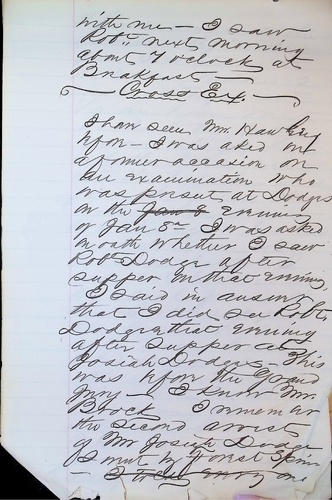 with me — I saw
Robt next morning
about 7 o'clock at
Breakfast —
Cross Ex.
I have seen Mr. Hawley
before — I was asked on
a former occasion on
an examination who
was present at Dodges
on the Jan 8 Evening
of Jan 8th I was asked
on oath whether I saw
Robt Dodge after
supper on that Evening.
I said in answer
that I did see Robt
Dodge that evening
after supper at
Josiah Dodges. This
was before the Grand
Jury — I know Mr.
Brock I remember
the second arrest
of Mr Josiah Dodge
I went by
one